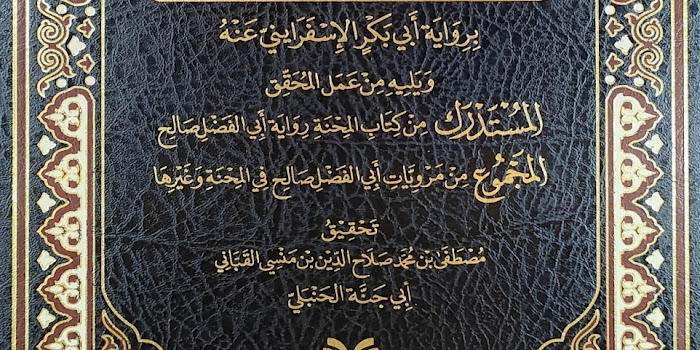 بِرِوَايَة أَبي بَكْرٍ الإِسْفَرَايِنيّ عَنْهُ
وَيَلِيهِ مِنْ عَمَلِ المُحَقِّق
المُسْتَدْرَك مِنْ كِتَابِ المِحْنَةِ رِوَايَة أَبِي الفَضْلِ صَالِح
المَجْمُوع مِنْ مَرْوِيَّاتِ أَبِي الفَضْلِ صَالِح فِي المِحْنَةِ وَغَيْرِهَا
تَحْقِيْقُ
مُصْطَفَى بْن مُحَمَّد صَلَاح الدِّيْن بْن مَنْسِي القَبَّانِي
أَبِي جَنَّة الحَنْبَلِيّ